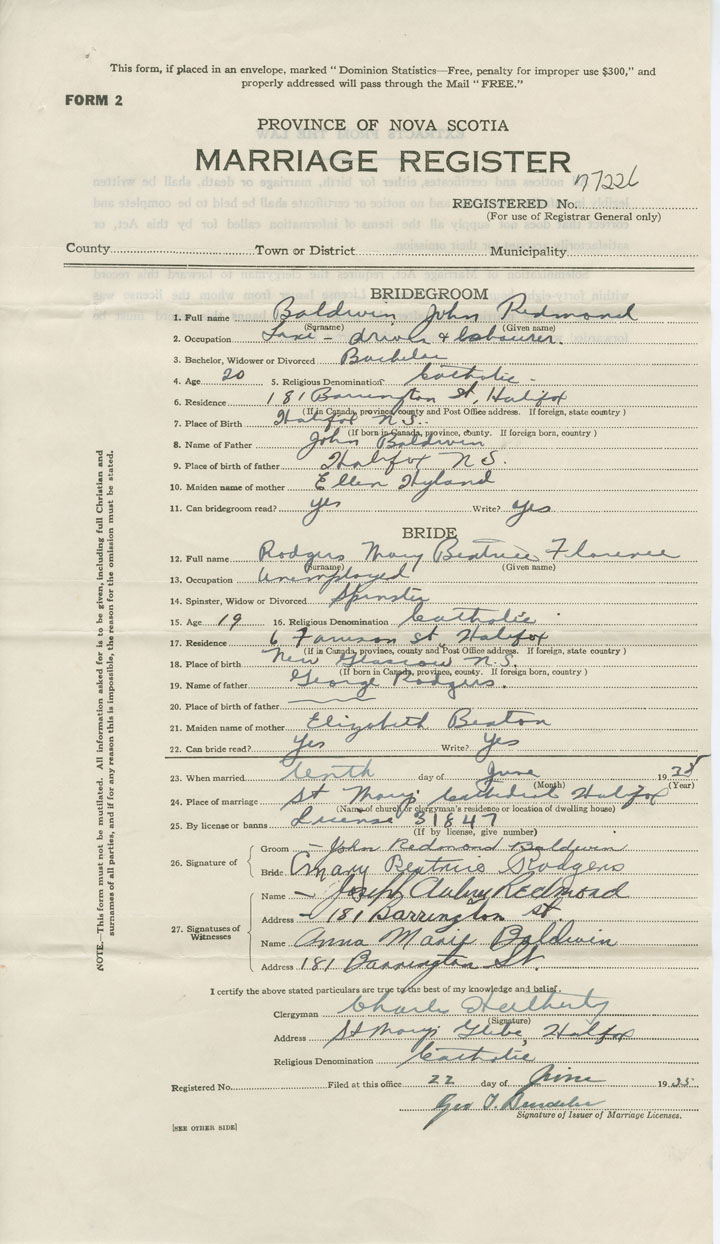 This form, if placed in an envelope, marked "Dominion Statistics—Free, penalty for improper use $300," and
properly addressed will pass through the Mail "FREE."
FORM 2
PROVINCE OF NOVA SCOTIA
MARRIAGE REGISTER
REGISTERED No. 
(For use of Registrar General only)
County Town or District Municipality
BRIDEGROOM
1. Full name Baldwin John Redmond
(Surname) (Given name)
2. Occupation Taxi - driver & labourer.
3. Bachelor, Widower or Divorced Bachelor
4. Age 20 5. Religious Denomination Catholic -
6. Residence 181 Barrington St, Halifax
(If in Canada, province, county and Post Office address. If foreign, state country)
7. Place of Birth Halifax N.S.
(If born in Canada, province, county. If foreign born, country)
8. Name of Father John Baldwin
9. Place of birth of father Halifax N.S.
10. Maiden name of mother Ellen Hyland
11. Can bridegroom read? yes Write? yes
BRIDE
12. Full name Rodgers Mary Beatrice Florence
(Surname) (Given name)
13. Occupation Unemployed
14. Spinster, Widow or Divorced Spinster
15. Age 19 16. Religious Denomination Catholic
17. Residence 6 St, Halifax
(If in Canada, province, county and Post Office address. If foreign, state country)
18. Place of birth New Glasgow N.S.
(If born in Canada, province, county. If foreign born, country)
19. Name of father George Rodgers.
20. Place of birth of father
21. Maiden name of mother Elizabeth Beaton
22. Can bride read? Yes Write? Yes
23. When married tenth day of June 1935
(Month) (Year)
24. Place of marriage St Mary's Cathedral Halifax
(Name of church or clergyman's residence or location of dwelling house)
25. By license or banns License 31847
(If by license, give number)
26. Signature of
Groom - John Redmond Baldwin
Bride Mary Beatrice Rodgers
27. Signatures of Witnesses
Name - Joseph Aubrey Redmond
Address - 181 Barrington St.
Name Anna Marie Baldwin
Address 181 Barrington St.
I certify the above stated particulars are true to the best of my knowledge and belief.
Clergyman Charles
(Signature)
Address St Mary's Glebe, Halifax
Religious Denomination Catholic
Registered No. Filed at this office 22 day of June 1935
Geo T.
Signature of Issuer of Marriage Licenses.
[SEE OTHER SIDE]
NOTE.—This form must not be mutilated. All information asked for is to be given, including full Christian and
surnames of all parties, and if for any reason this is impossible, the reason for the omission must be stated.